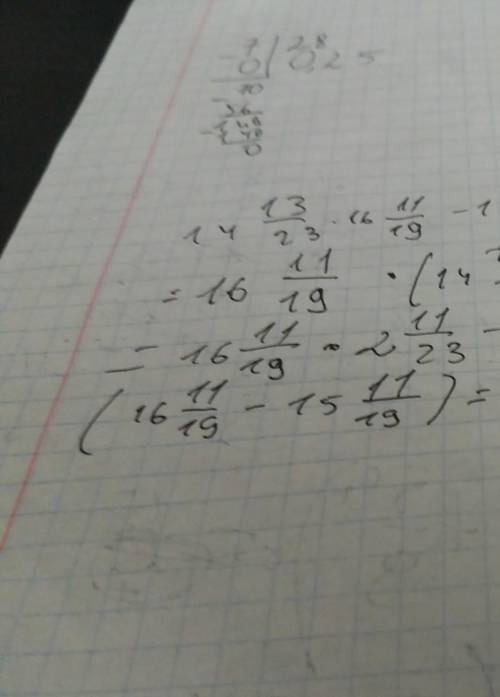 7 | 28
- 0 | 0,25
70
0
14 13/23 · 16 11/19 - 1
= 16 11/19 · (14
= 16 11/19 · 2 11/23 -
(16 11/19 - 15 11/19) =